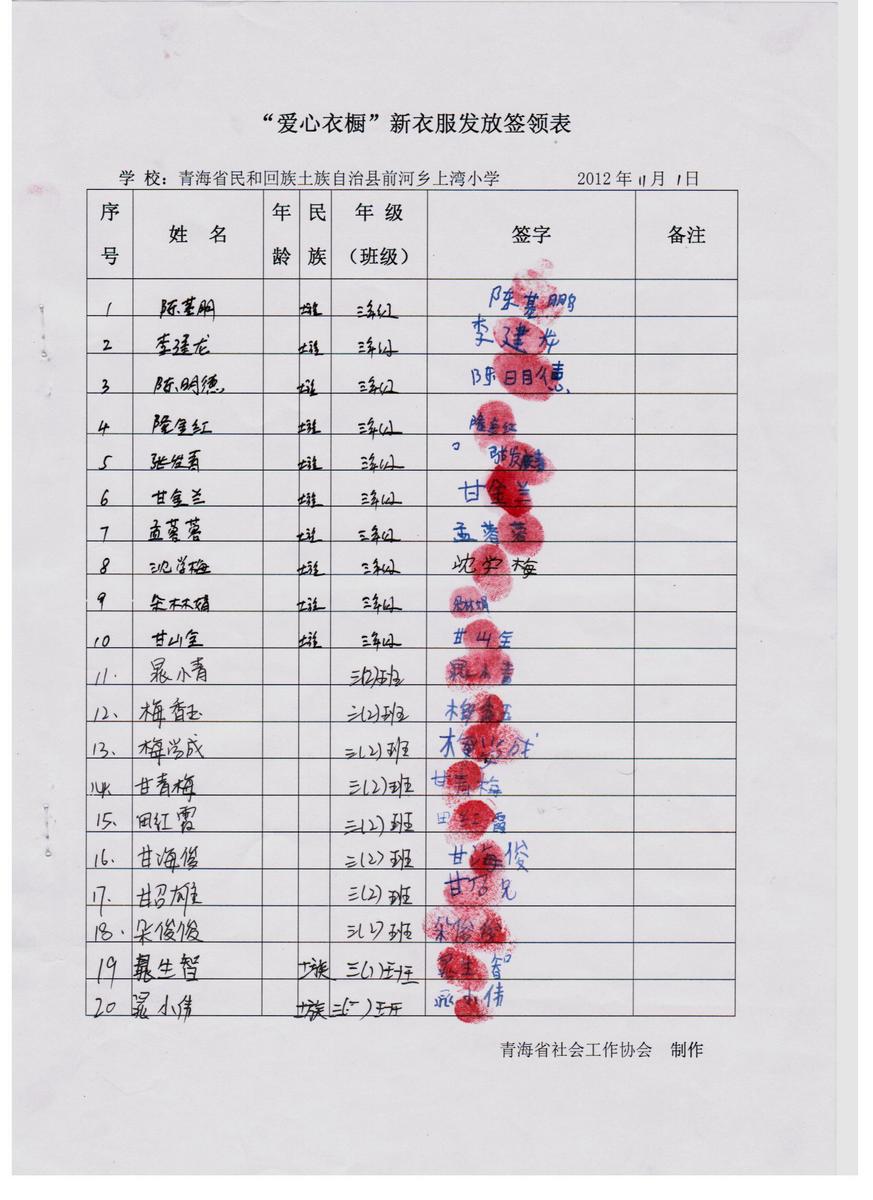 “爱心衣橱”新衣服发放签领表
学 校：青海省民和回族土族自治县前河乡上湾小学 2012 年 11 月 1 日
序号 姓 名 年龄 民族 年 级（班级） 签字 备注
1 陈基鹏 土族 三年级 陈基鹏
2 李建龙 土族 三年级 李建龙
3 陈明德 土族 三年级 陈明德
4 隆金红 土族 三年级 隆金红
5 张发青 土族 三年级 张发青
6 甘金兰 土族 三年级 甘金兰
7 孟蓉蓉 土族 三年级 孟蓉蓉
8 沈学梅 土族 三年级 沈学梅
9 朵林娟 土族 三年级 朵林娟
10 甘山金 土族 三年级 甘山金
11. 晁小青 三(2)班 晁小青
12、 梅香玉 三(2)班 梅香玉
13、 梅学成 三(2)班 梅学成
14 甘青梅 三(2)班 甘青梅
15、 田红霞 三(2)班 田红霞
16. 甘海俊 三(2)班 甘海俊
17. 甘招雄 三(2)班
18. 朵俊俊 三(2)班 朵俊俊
19 晁生智 土族 三(1)班 晁生智
20 晁小伟 土族 班 晁小伟
青海省社会工作协会 制作